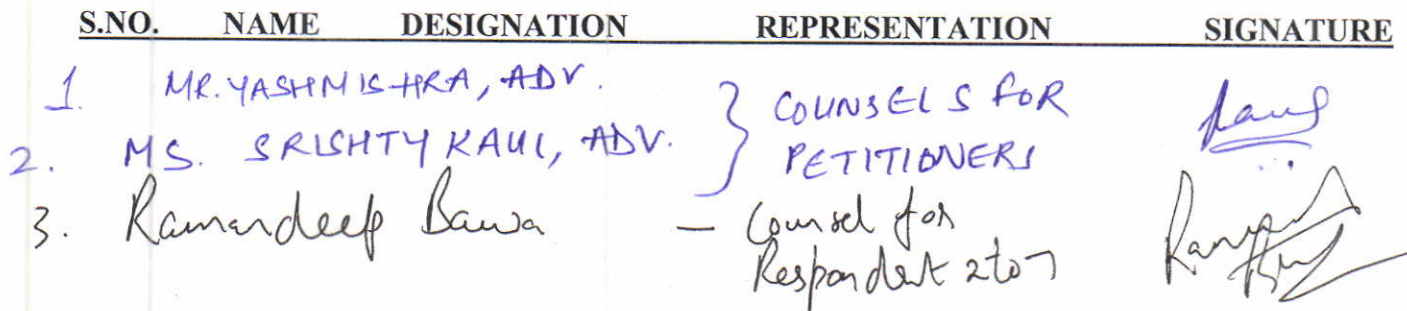 S.NO. NAME DESIGNATION REPRESENTATION SIGNATURE
1. MR. YASH MISHRA, ADV. } COUNSELS FOR
2. MS. SRISHTY KAUL, ADV. PETITIONERS
3. Ramandeep Bawa — Counsel for
Respondent 2 to 7